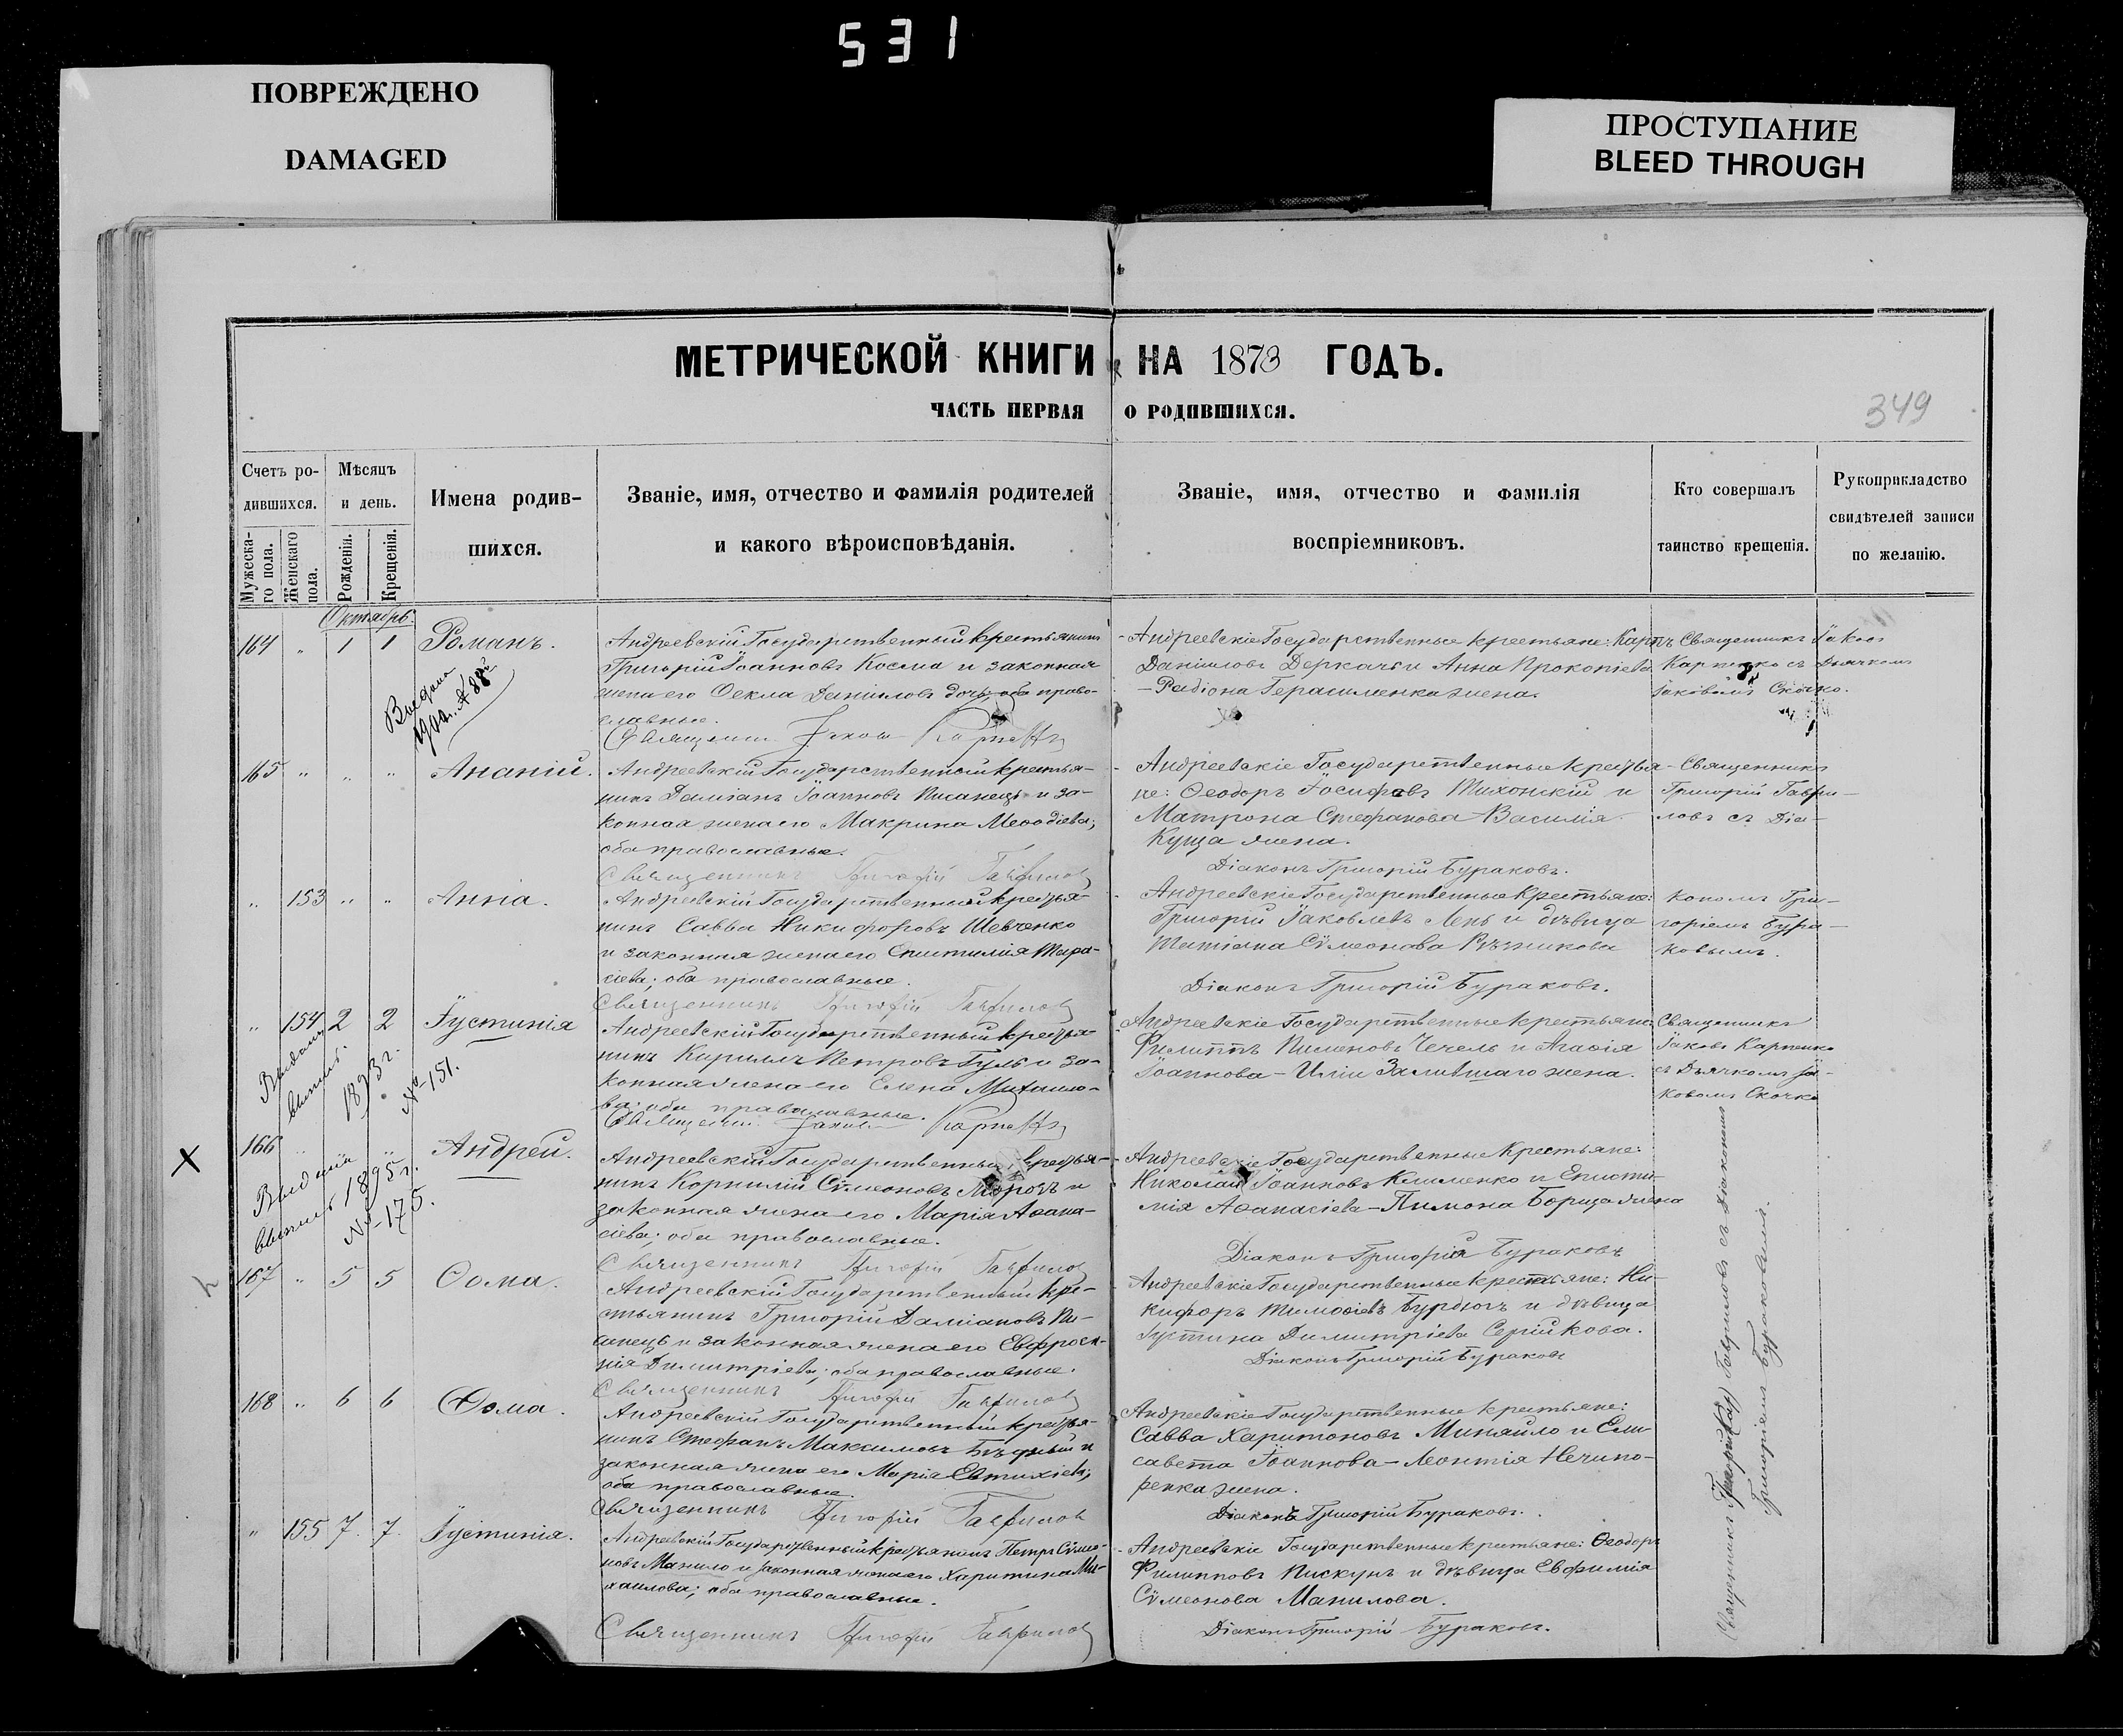 531
ПОВРЕЖДЕНО
DAMAGED
ПРОСТУПАНИЕ
BLEED THROUGH
МЕТРИЧЕСКОЙ КНИГИ НА 1873 ГОДЪ.
ЧАСТЬ ПЕРВАЯ О РОДИВШИХСЯ.
349
Счетъ ро-
дившихся.
Мужеска-
го пола.
Женскаго
пола.
Мѣсяцъ
и день.
Рожденія.
Крещенія.
Имена родив-
шихся.
Званіе, имя, отчество и фамилія родителей
и какого вѣроисповѣданія.
Званіе, имя, отчество и фамилія
воспріемниковъ.
Кто совершалъ
таинство крещенія.
Рукоприкладство
свидѣтелей записи
по желанію.
Октябрь.
164 " 1 1 Романъ.
Андреевскій Государственный крестьянинъ
Григорій Іоанновъ Косма и законная
жена его Ѳекла Даніилова дочь, оба право-
славные.
Андреевскіе Государственные крестьяне: Карпъ
Даніиловъ Деркачъ и Анна Прокопіева
- Радіона Герасименка жена.
Священникъ Іаковъ
Карпенко съ Дьячкомъ
Іаковомъ Скочко.
165 " " " Ананій.
Андреевскій Государственный крестья-
нинъ Даміанъ Іоанновъ Писанецъ и за-
конная жена его Макрина Меѳодіева;
оба православные.
Священникъ Григорій Гавриловъ
Андреевскіе Государственные крестья-
не: Ѳеодоръ Іосифовъ Тихонскій и
Матрона Стефанова Василія
Куща жена.
Діаконъ Григорій Бураковъ.
Священникъ
Григорій Гаври-
ловъ съ Діа-
" 153 " " Анна.
Андреевскій Государственный крестья-
нинъ Савва Никифоровъ Шевченко
и законная жена его Епистимія Тара-
сіева; оба православные.
Священникъ Григорій Гавриловъ
Андреевскіе Государственные крестьяне:
Григорій Іаковлевъ Лень и дѣвица
Татіана Сѵмеонова
Діаконъ Григорій Бураковъ.
кономъ Гри-
горіемъ Бура-
ковымъ.
" 154 2 2 Іустинія
1893 г.
№ 151.
Андреевскій Государственный крестья-
нинъ Кириллъ Петровъ Гуль и за-
конная жена его Елена Михаило-
ва; оба православные.
Андреевскіе Государственные крестьяне
Филиппъ Пименовъ Чечель и Агаѳія
Іоаннова - Иліи Залившаго жена.
Священникъ
Іаковъ Карпенко
съ Дьячкомъ Іа-
ковомъ Скочко
166 " " " Андрей.
1895 г.
№ 175.
Андреевскій Государственный крестья-
нинъ Корнилій Сѵмеоновъ Морозъ и
законная жена его Марія Аѳана-
сіева; оба православные.
Священникъ Григорій Гавриловъ
Андреевскіе Государственные крестьяне:
Николай Іоанновъ Клименко и Еписти-
мія Аѳанасіева - Пимона Борща жена
Діаконъ Григорій Бураковъ
167 " 5 5 Ѳома.
Андреевскій Государственный кре-
стьянинъ Григорій Даміановъ Пи-
санецъ и законная жена его Евфроси-
нія Димитріева; оба православные.
Священникъ Григорій Гавриловъ
Андреевскіе Государственные крестьяне: Ни-
кифоръ Тимоѳіевъ Бурдюгъ и дѣвица
Іустина Димитріева Серійкова.
Діаконъ Григорій Бураковъ
168 " 6 6 Ѳома.
Андреевскій Государственный крестья-
нинъ Стефанъ Максимовъ Бѣдный и
законная жена его Марія Евтихіева;
оба православные.
Священникъ Григорій Гавриловъ
Андреевскіе Государственные крестьяне:
Савва Харитоновъ Миняйло и Ели-
савета Іоаннова - Леонтія Нечипо-
ренка жена.
Діаконъ Григорій Бураковъ.
" 155 7. 7. Іустинія.
Андреевскій Государственный крестьянинъ Петръ Сѵмео-
новъ Манило и законная жена его Харитина Ми-
хаилова; оба православные.
Священникъ Григорій Гавриловъ
Андреевскіе Государственные крестьяне: Ѳеодоръ
Филипповъ Пискунъ и дѣвица Евфимія
Сѵмеонова Манилова.
Діаконъ Григорій Бураковъ.
Священникъ Григорій Гавриловъ съ Діакономъ
Григоріемъ Бураковымъ.